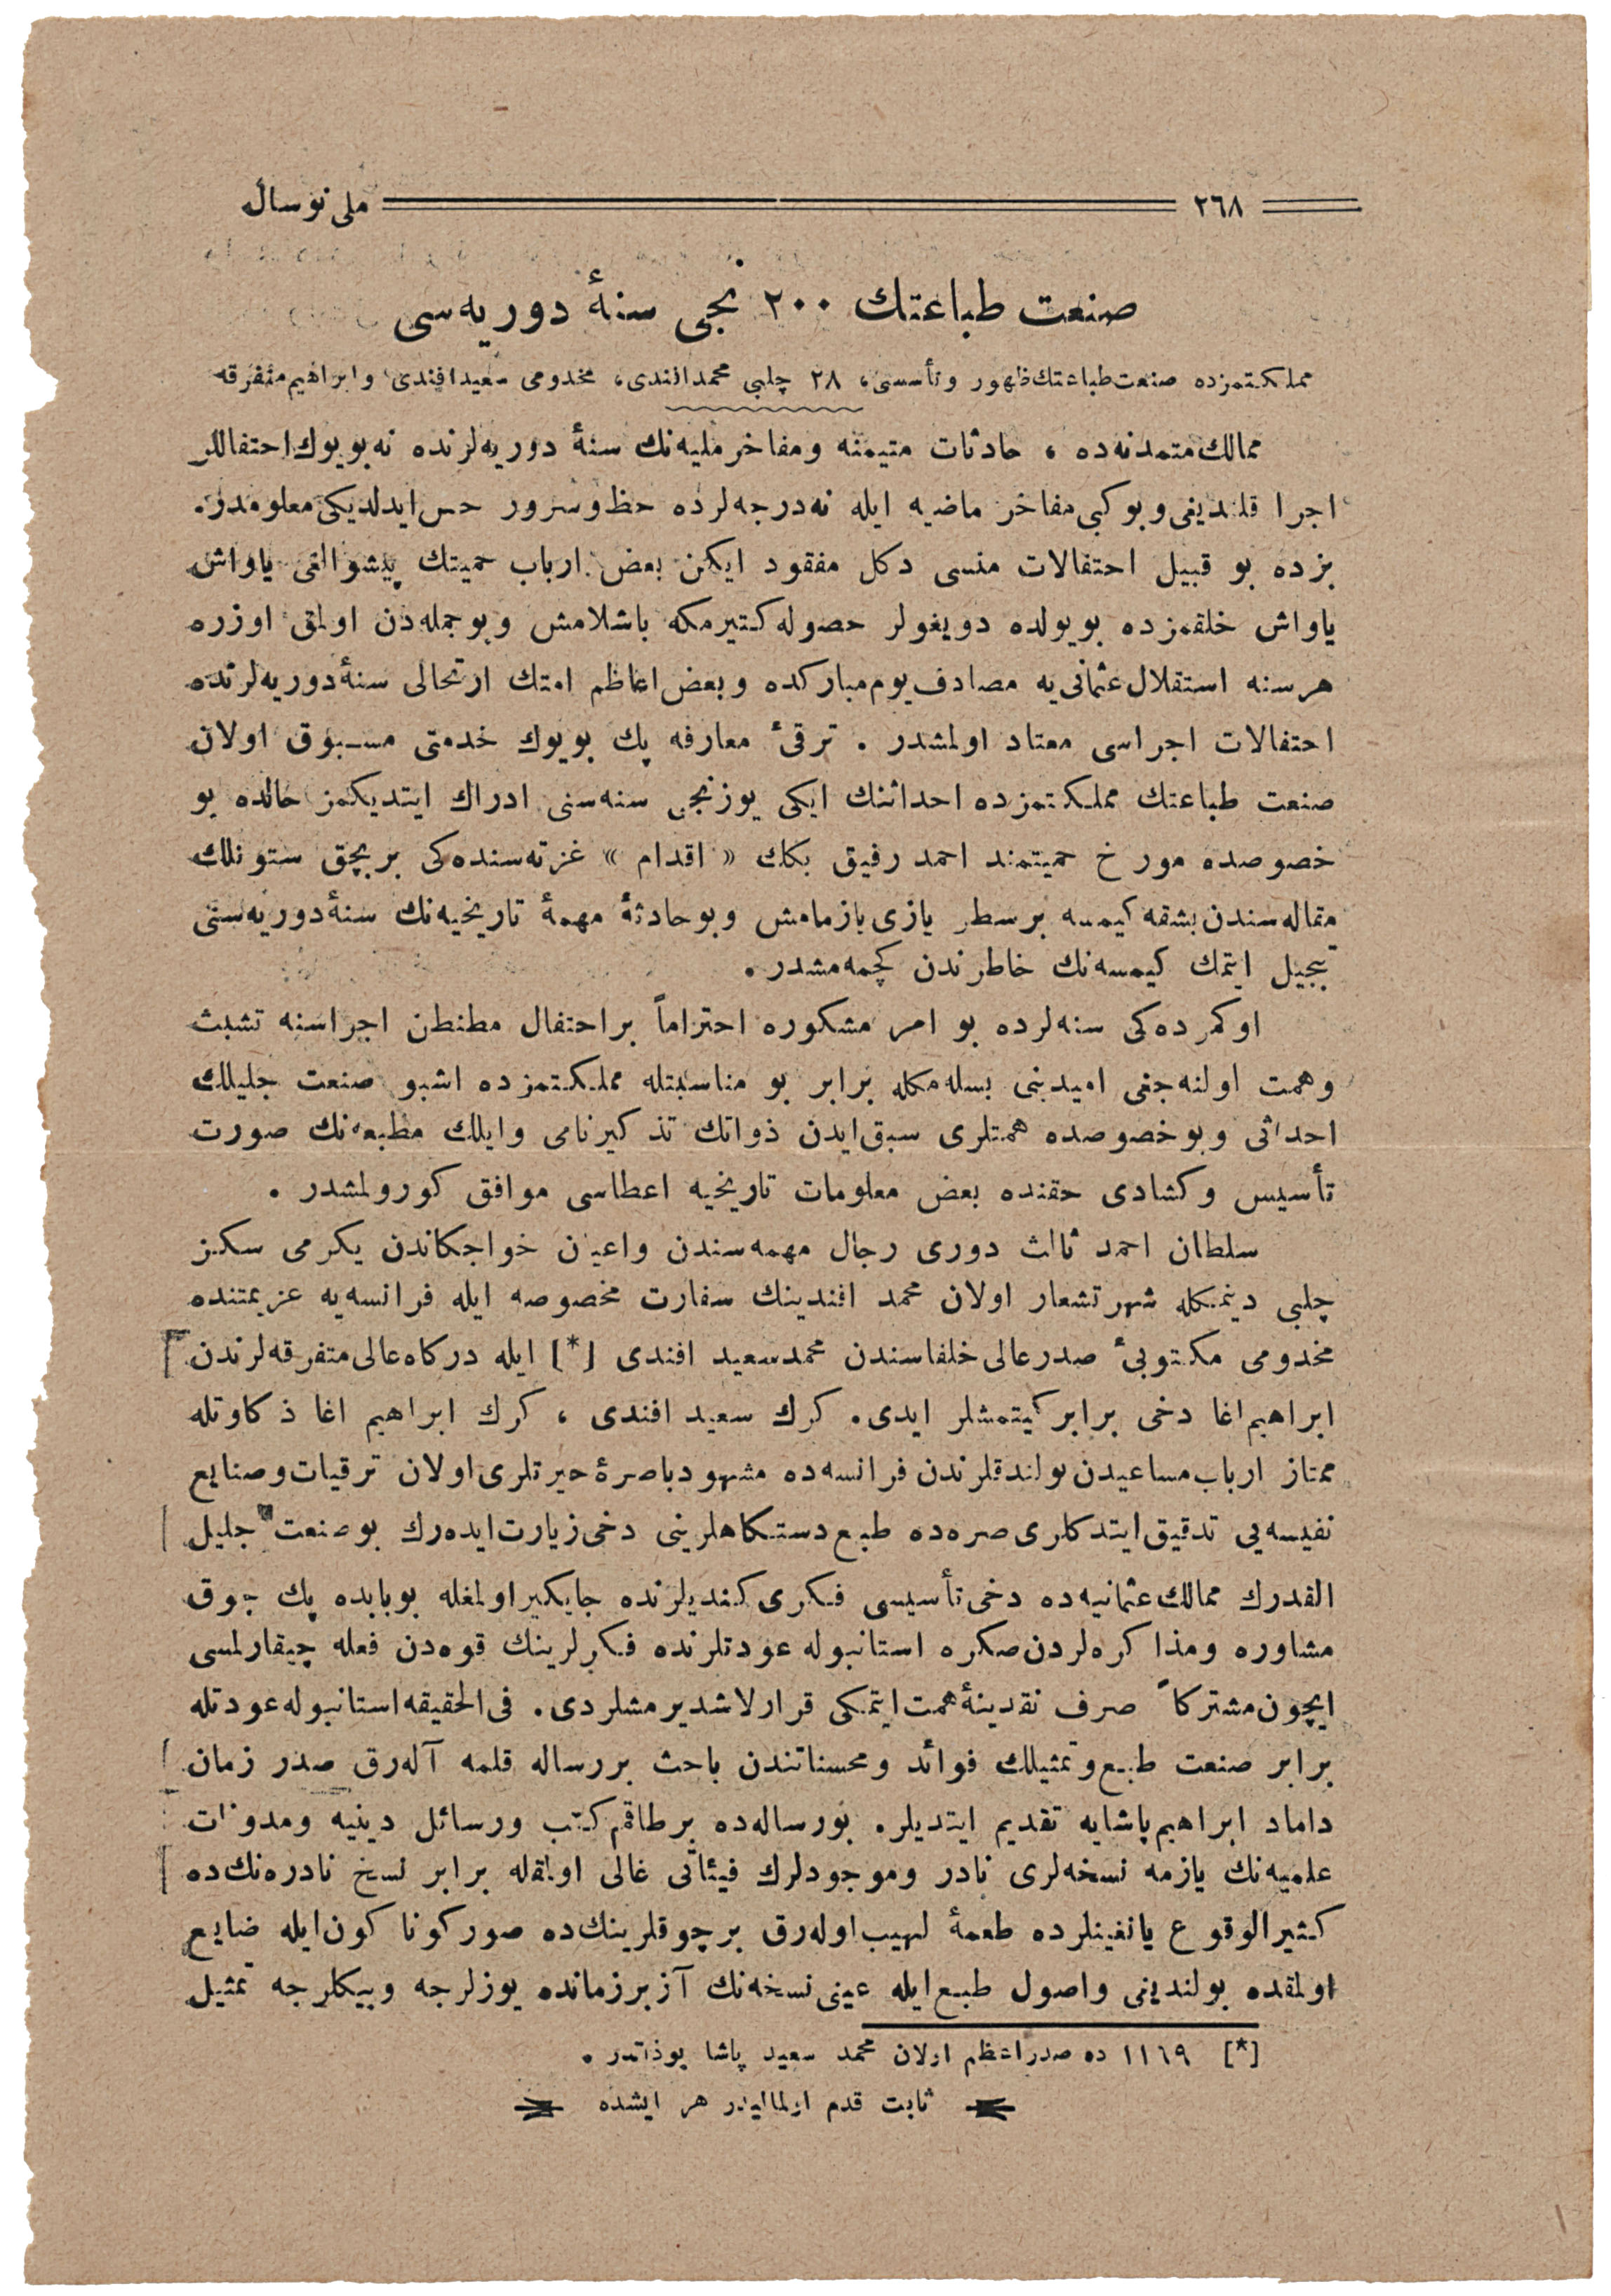 ٢٦٨ ملی نوسال
صنعت طباعتك ٢٠٠ نجی سنهٔ دوریه‌سی
مملكتمزده صنعت طباعتك ظهور وتأسسی، ٢٨ چلبی محمد افندی، مخدومی سعید افندی وابراهیم متفرقه
ممالك متمدنه‌ده ، حادثات متیمنه ومفاخر ملیه‌نك سنهٔ دوریه‌لرنده نه بویوك احتفاللر
اجرا قلندیغی وبوكبی مفاخر ماضیه ایله نه‌درجه‌لرده حظ وسرور حس ایدلدیكی معلومدر.
بزده بو قبیل احتفالات منسی دكل مفقود ایكن بعض ارباب حمیتك پیشوالغی یاواش
یاواش خلقمزده بویولده دویغولر حصوله كتیرمكه باشلامش وبوجمله‌دن اولمق اوزره
هرسنه استقلال عثمانی‌یه مصادف یوم مباركده وبعض اعاظم امتك ارتحالی سنهٔ دوریه‌لرنده
احتفالات اجراسی معتاد اولمشدر . ترقیٔ معارفه پك بویوك خدمتی مسبوق اولان
صنعت طباعتك مملكتمزده احداثنك ایكی یوزنجی سنه‌سنی ادراك ایتدیكمز حالده بو
خصوصده مورخ حمیتمند احمد رفیق بكك « اقدام » غزته‌سنده‌كی بربچق ستونلك
مقاله‌سندن بشقه كیمسه برسطر یازی یازمامش وبوحادثهٔ مهمهٔ تاریخیه‌نك سنهٔ دوریه‌سنی
تبجیل ایتمك كیمسه‌نك خاطرندن كچمه‌مشدر .
اوكمزده‌كی سنه‌لرده بو امر مشكوره احتراماً براحتفال مطنطن اجراسنه تشبث
وهمت اولنه‌جغی امیدینی بسله‌مكله برابر بو مناسبتله مملكتمزده اشبو صنعت جلیلك
احداثی وبوخصوصده همتلری سبق ایدن ذواتك تذكیرنامی وایلك مطبعه‌نك صورت
تأسیس وكشادی حقنده بعض معلومات تاریخیه اعطاسی موافق كورولمشدر .
سلطان احمد ثالث دوری رجال مهمه‌سندن واعیان خواجكاندن یكرمی سكز
چلبی دینمكله شهرتشعار اولان محمد افندینك سفارت مخصوصه ایله فرانسه‌یه عزیمتنده
مخدومی مكتوبیٔ صدرعالی خلفاسندن محمدسعید افندی [*] ایله دركاه عالی متفرقه‌لرندن
ابراهیم اغا دخی برابر كیتمشلر ایدی. كرك سعید افندی ، كرك ابراهیم اغا ذكاوتله
ممتاز ارباب مساعیدن بولندقلرندن فرانسه‌ده مشهود باصرهٔ حیرتلری اولان ترقیات وصنایع
نفیسه‌یی تدقیق ایتدكلری صره‌ده طبع دستكاهلرینی دخی زیارت ایده‌رك بوصنعت جلیل
القدرك ممالك عثمانیه‌ده دخی تأسیسی فكری كندیلرنده جایكیر اولمغله بوبابده پك چوق
مشاوره ومذاكره‌لردن صكره استانبوله عودتلرنده فكرلرینك قوه‌دن فعله چیقارلمسی
ایچون مشتركاً صرف نقدینهٔ همت ایتمكی قرارلاشدیرمشلردی. فی‌الحقیقه استانبوله عودتله
برابر صنعت طبع وتمثیلك فوائد ومحسناتندن باحث بررساله قلمه آله‌رق صدر زمان
داماد ابراهیم پاشایه تقدیم ایتدیلر. بورساله‌ده برطاقم كتب ورسائل دینیه ومدونات
علمیه‌نك یازمه نسخه‌لری نادر وموجودلرك فیئاتی غالی اولمقله برابر نسخ نادره‌نك ده
كثیرالوقوع یانغینلرده طعمهٔ لهیب اوله‌رق برچوقلرینك ده صور كوناكون ایله ضایع
اولمقده بولندیغی واصول طبع ایله عینی نسخه‌نك آز برزمانده یوزلرجه وبیكلرجه تمثیل
[*] ١١٦٩ ده صدراعظم اولان محمد سعید پاشا بوذاتدر .
ثابت قدم اولمالیدر هر ایشده